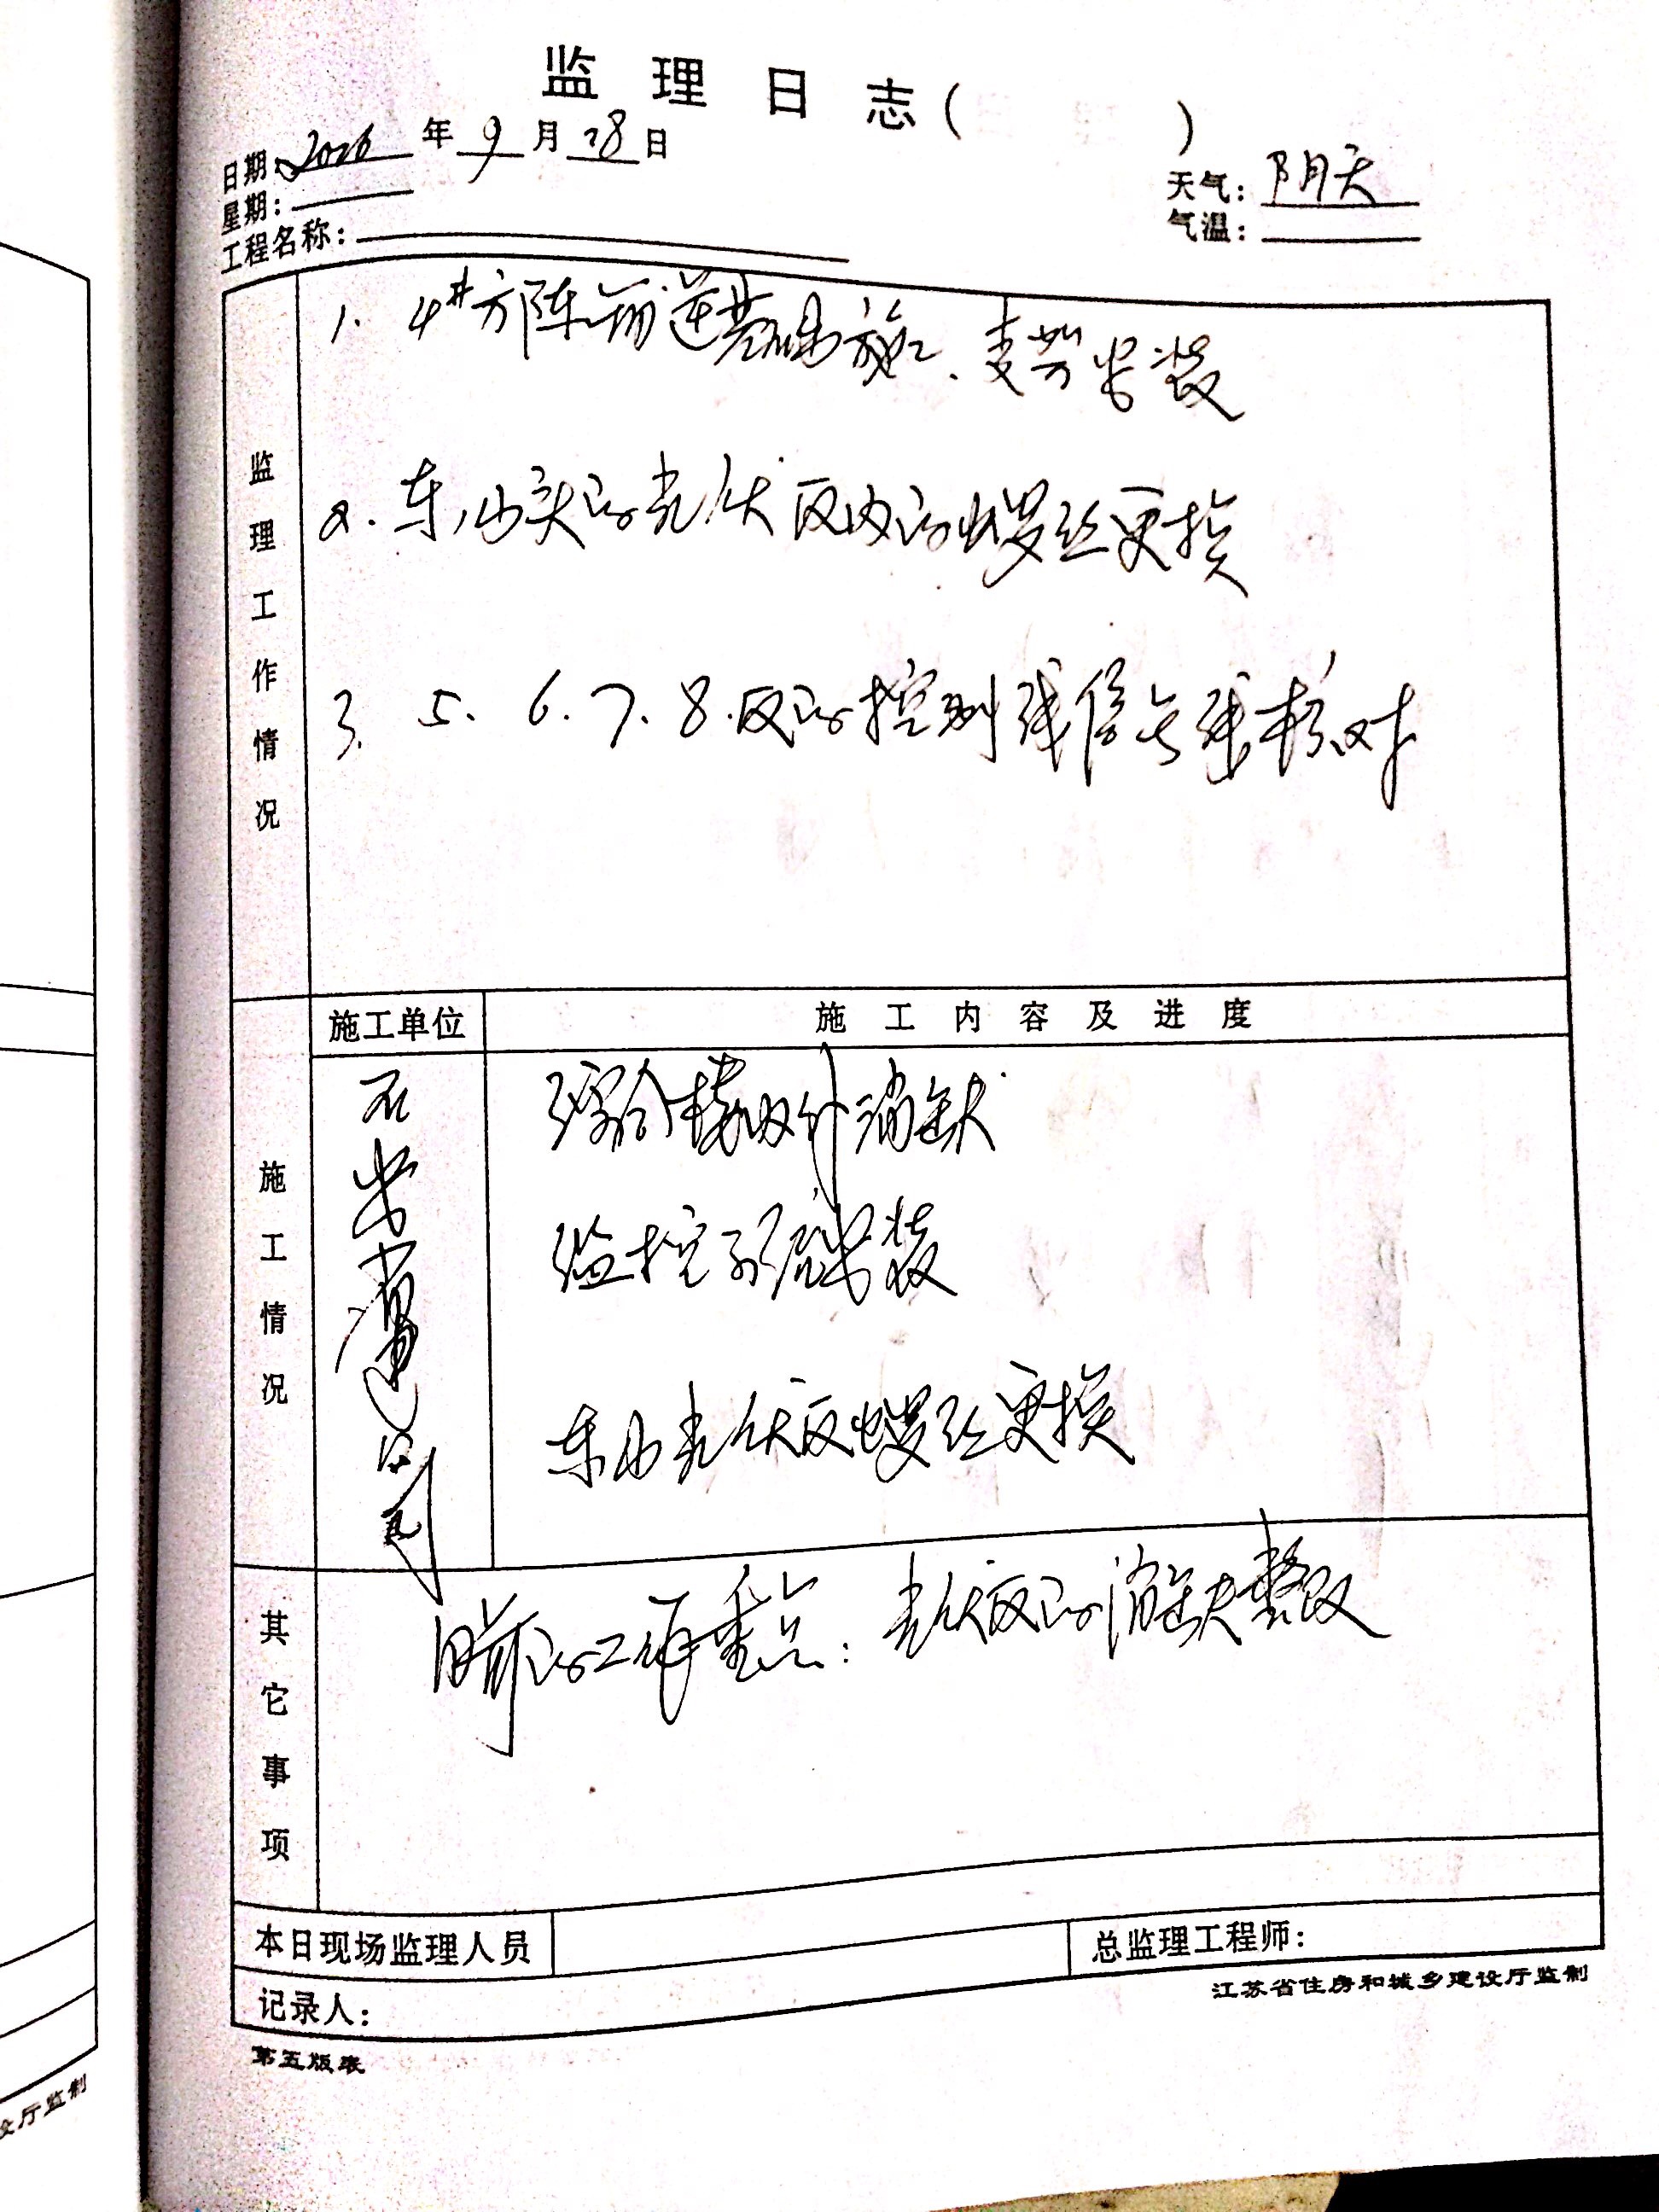 监理日志(      )
日期:2016年9月28日
天气:阴天
星期:
气温:
工程名称:
监理工作情况
1. 4#方阵 基础施工、支架安装
2. 东山头的光伏区内的螺丝更换
3. 5.6.7.8.区的控制线信号线核对
施工单位
施工内容及进度
施工情况
公司
综合楼内外消缺
监控系统安装
东山光伏区螺丝更换
其它事项
目前的工作重点:光伏区的消缺整改
本日现场监理人员
总监理工程师:
记录人:
江苏省住房和城乡建设厅监制
第五版表
设厅监制